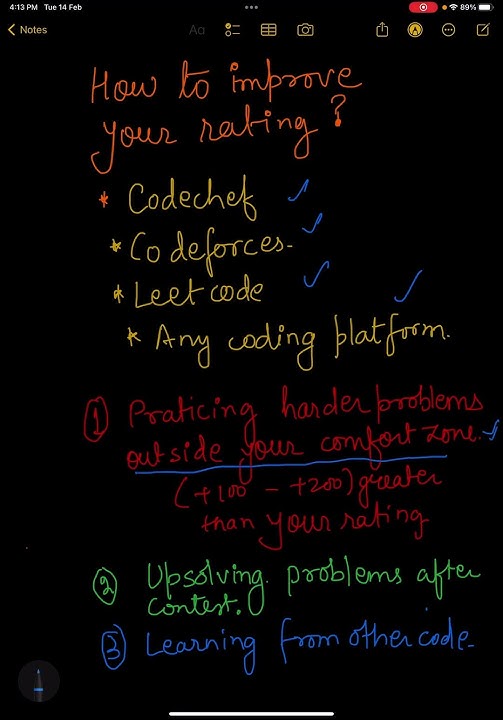 4:13 PM Tue 14 Feb
89%
Notes
Aa
How to improve
your rating ?
* Codechef
* Codeforces-
* Leetcode
* Any coding platform.
① Praticing harder problems
outside your comfort zone.
(+100 - +200) greater
than your rating
② Upsolving problems after
contest.
③ Learning from other code.